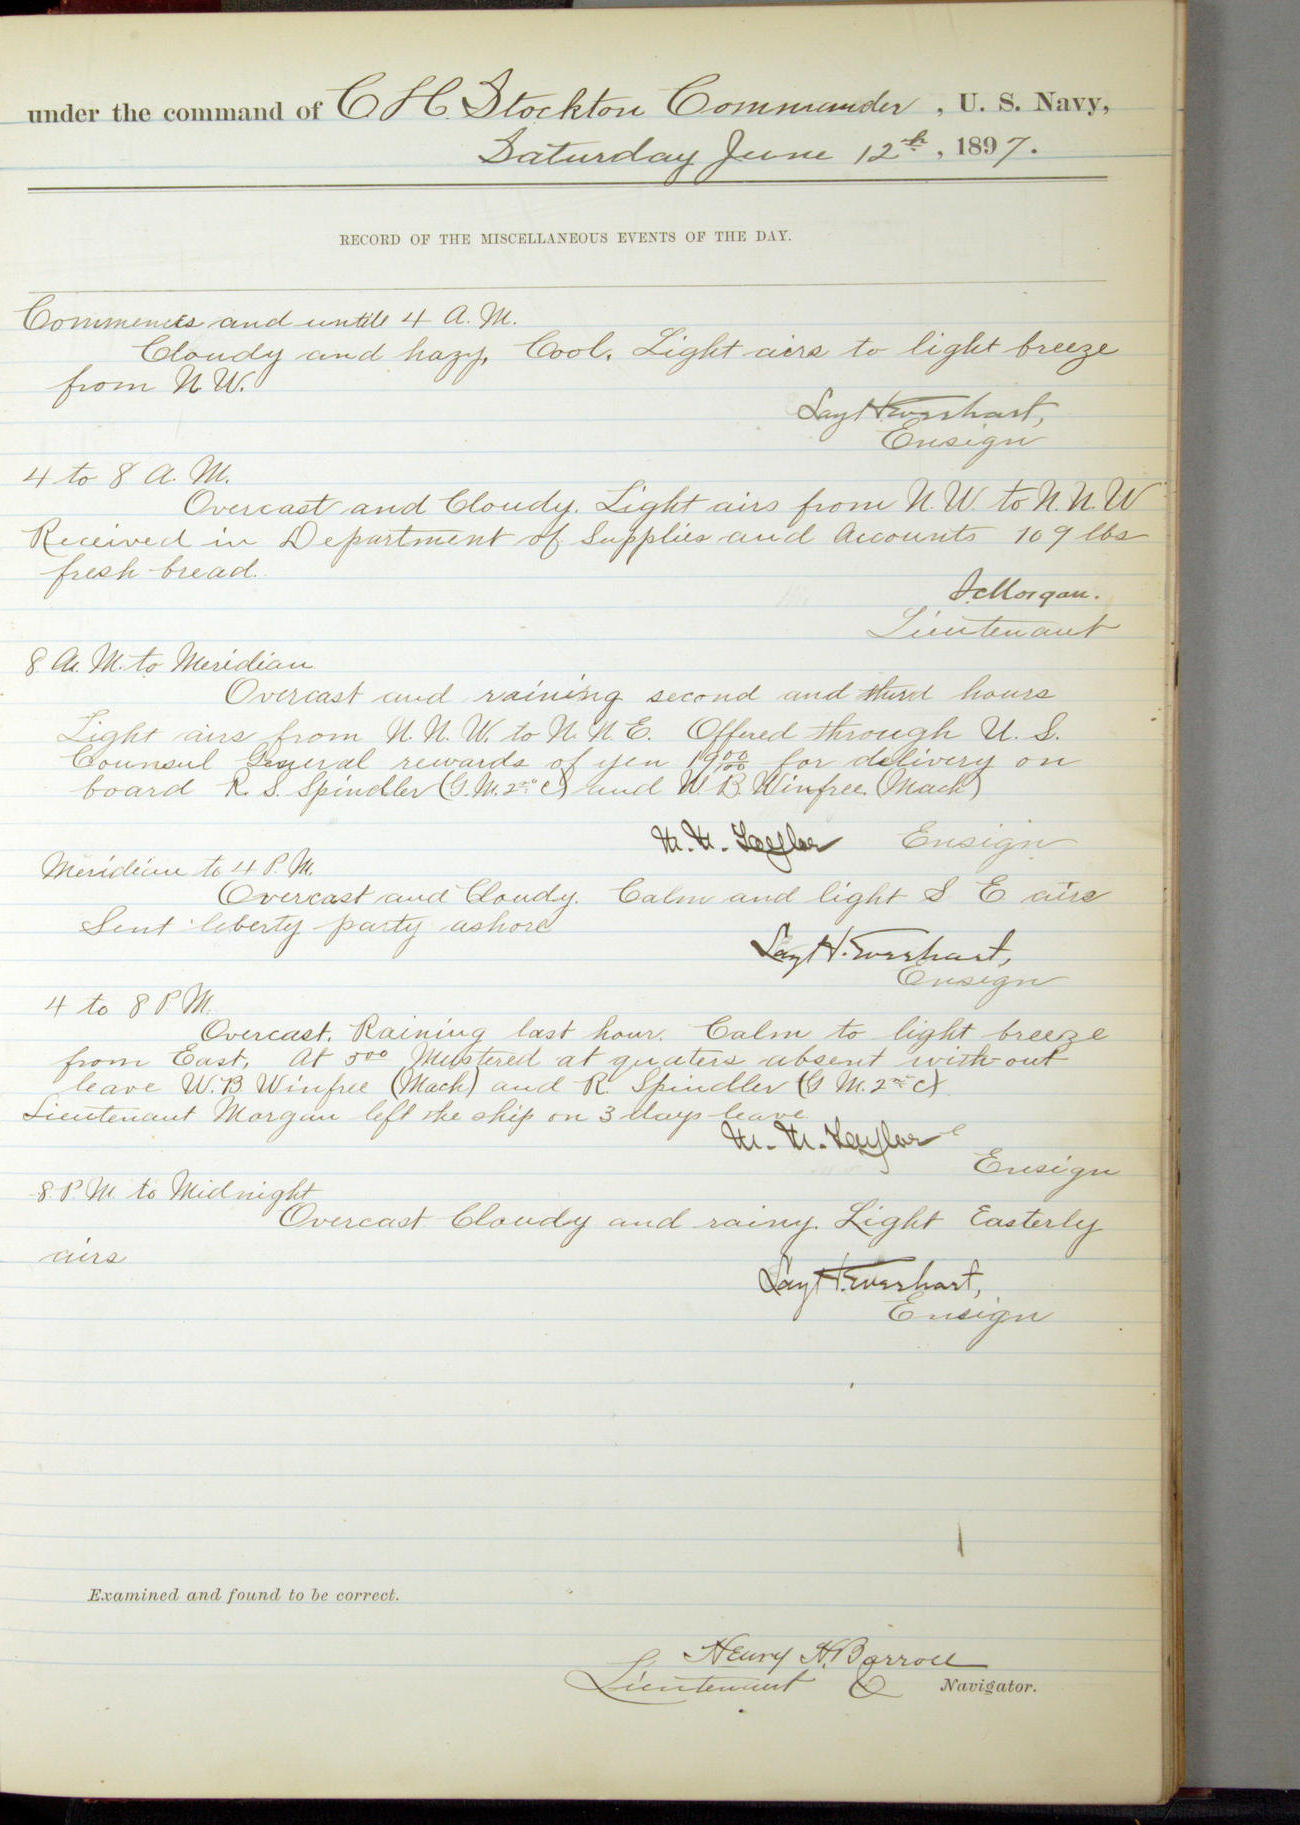 under the command of C H. Stockton Commander, U. S. Navy,
Saturday June 12th, 1897.
RECORD OF THE MISCELLANEOUS EVENTS OF THE DAY.
Commences and until 4 A. M.
Cloudy and hazy, Cool. Light airs to light breeze
from N. W.
Lay H. Everhart,
Ensign
4 to 8 A. M.
Overcast and Cloudy. Light airs from N. W. to N. N. W
Received in Department of Supplies and Accounts 109 lbs
fresh bread.
Morgan.
Lieutenant
8 A. M. to Meridian
Overcast and raining second and third hours
Light airs from N. N. W. to N. N. E. Offered through U. S.
Counsul General rewards of yen 19 00/100 for delivery on
board R. S. Spindler (G. M. 2nd C) and W. B. Winfree (Mach)
M. M. Taylor Ensign
Meridian to 4 P. M.
Overcast and Cloudy. Calm and light S E airs
Sent liberty party ashore
Lay H. Everhart,
Ensign
4 to 8 P M.
Overcast. Raining last hour. Calm to light breeze
from East. At 5 00 Mustered at quaters absent without
leave W. B Winfree (Mach) and R. Spindler (G M. 2nd C)
Lieutenant Morgan left the ship on 3 days leave
M. M. Taylor
Ensign
8 P. M. to Midnight
Overcast Cloudy and rainy. Light Easterly
airs
Lay H. Everhart,
Ensign
Examined and found to be correct.
Henry H. Barroll
Lieutenant & Navigator.